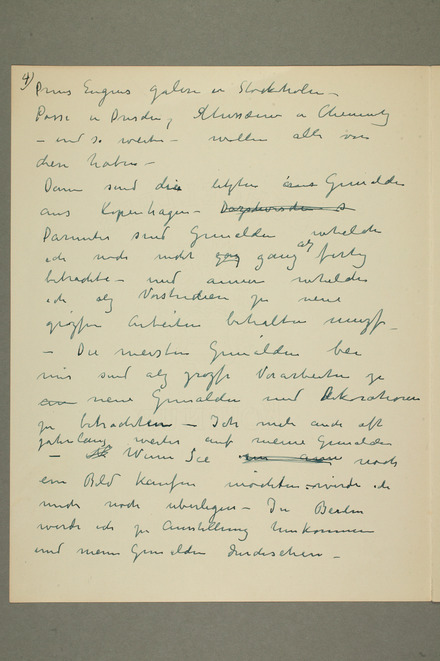 4)
Prins Eugens Galeri in Stockholm –
Posse in Dresden, Museum in Chemnitz
– und so weiter – wollen alle von
diese haben –
Dann sind die letzten Gemälden
aus Kopenhagen –
Darunter sind Gemälden welche
ich noch nicht ganz als fertig
betrachte – und andere welche
ich als Vorstudien zu neue
grozse Arbeiten behalten muzs –
– Die meisten Gemälden bei
mir sind als grozse Vorarbeiten zu
neue Gemälden und Dekorationen
zu betrachten – Ich male auch oft
jahrelang weiter auf meine Gemälden
– Wenn Sie noch
ein Bild kaufen möchten – würde ich
mich noch überlegen – In Berlin
werde ich zu Ausstellung hinkommen
und meine Gemälden durchsehen –